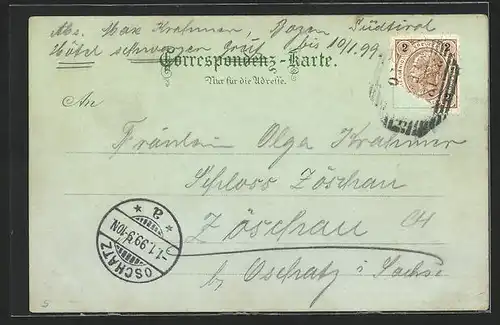 Abs. Max Krahmer, Bozen Südtirol
Hôtel schwarzen Greif bis 10/1.99.
Correspondenz-Karte.
Nur für die Adresse.
An
Fräulein Olga Krahmer
Schloss Zöschau
Zöschau
b/ Oschatz i Sachs
OSCHATZ
-1.1.99.9-10N.
* a *
2
S